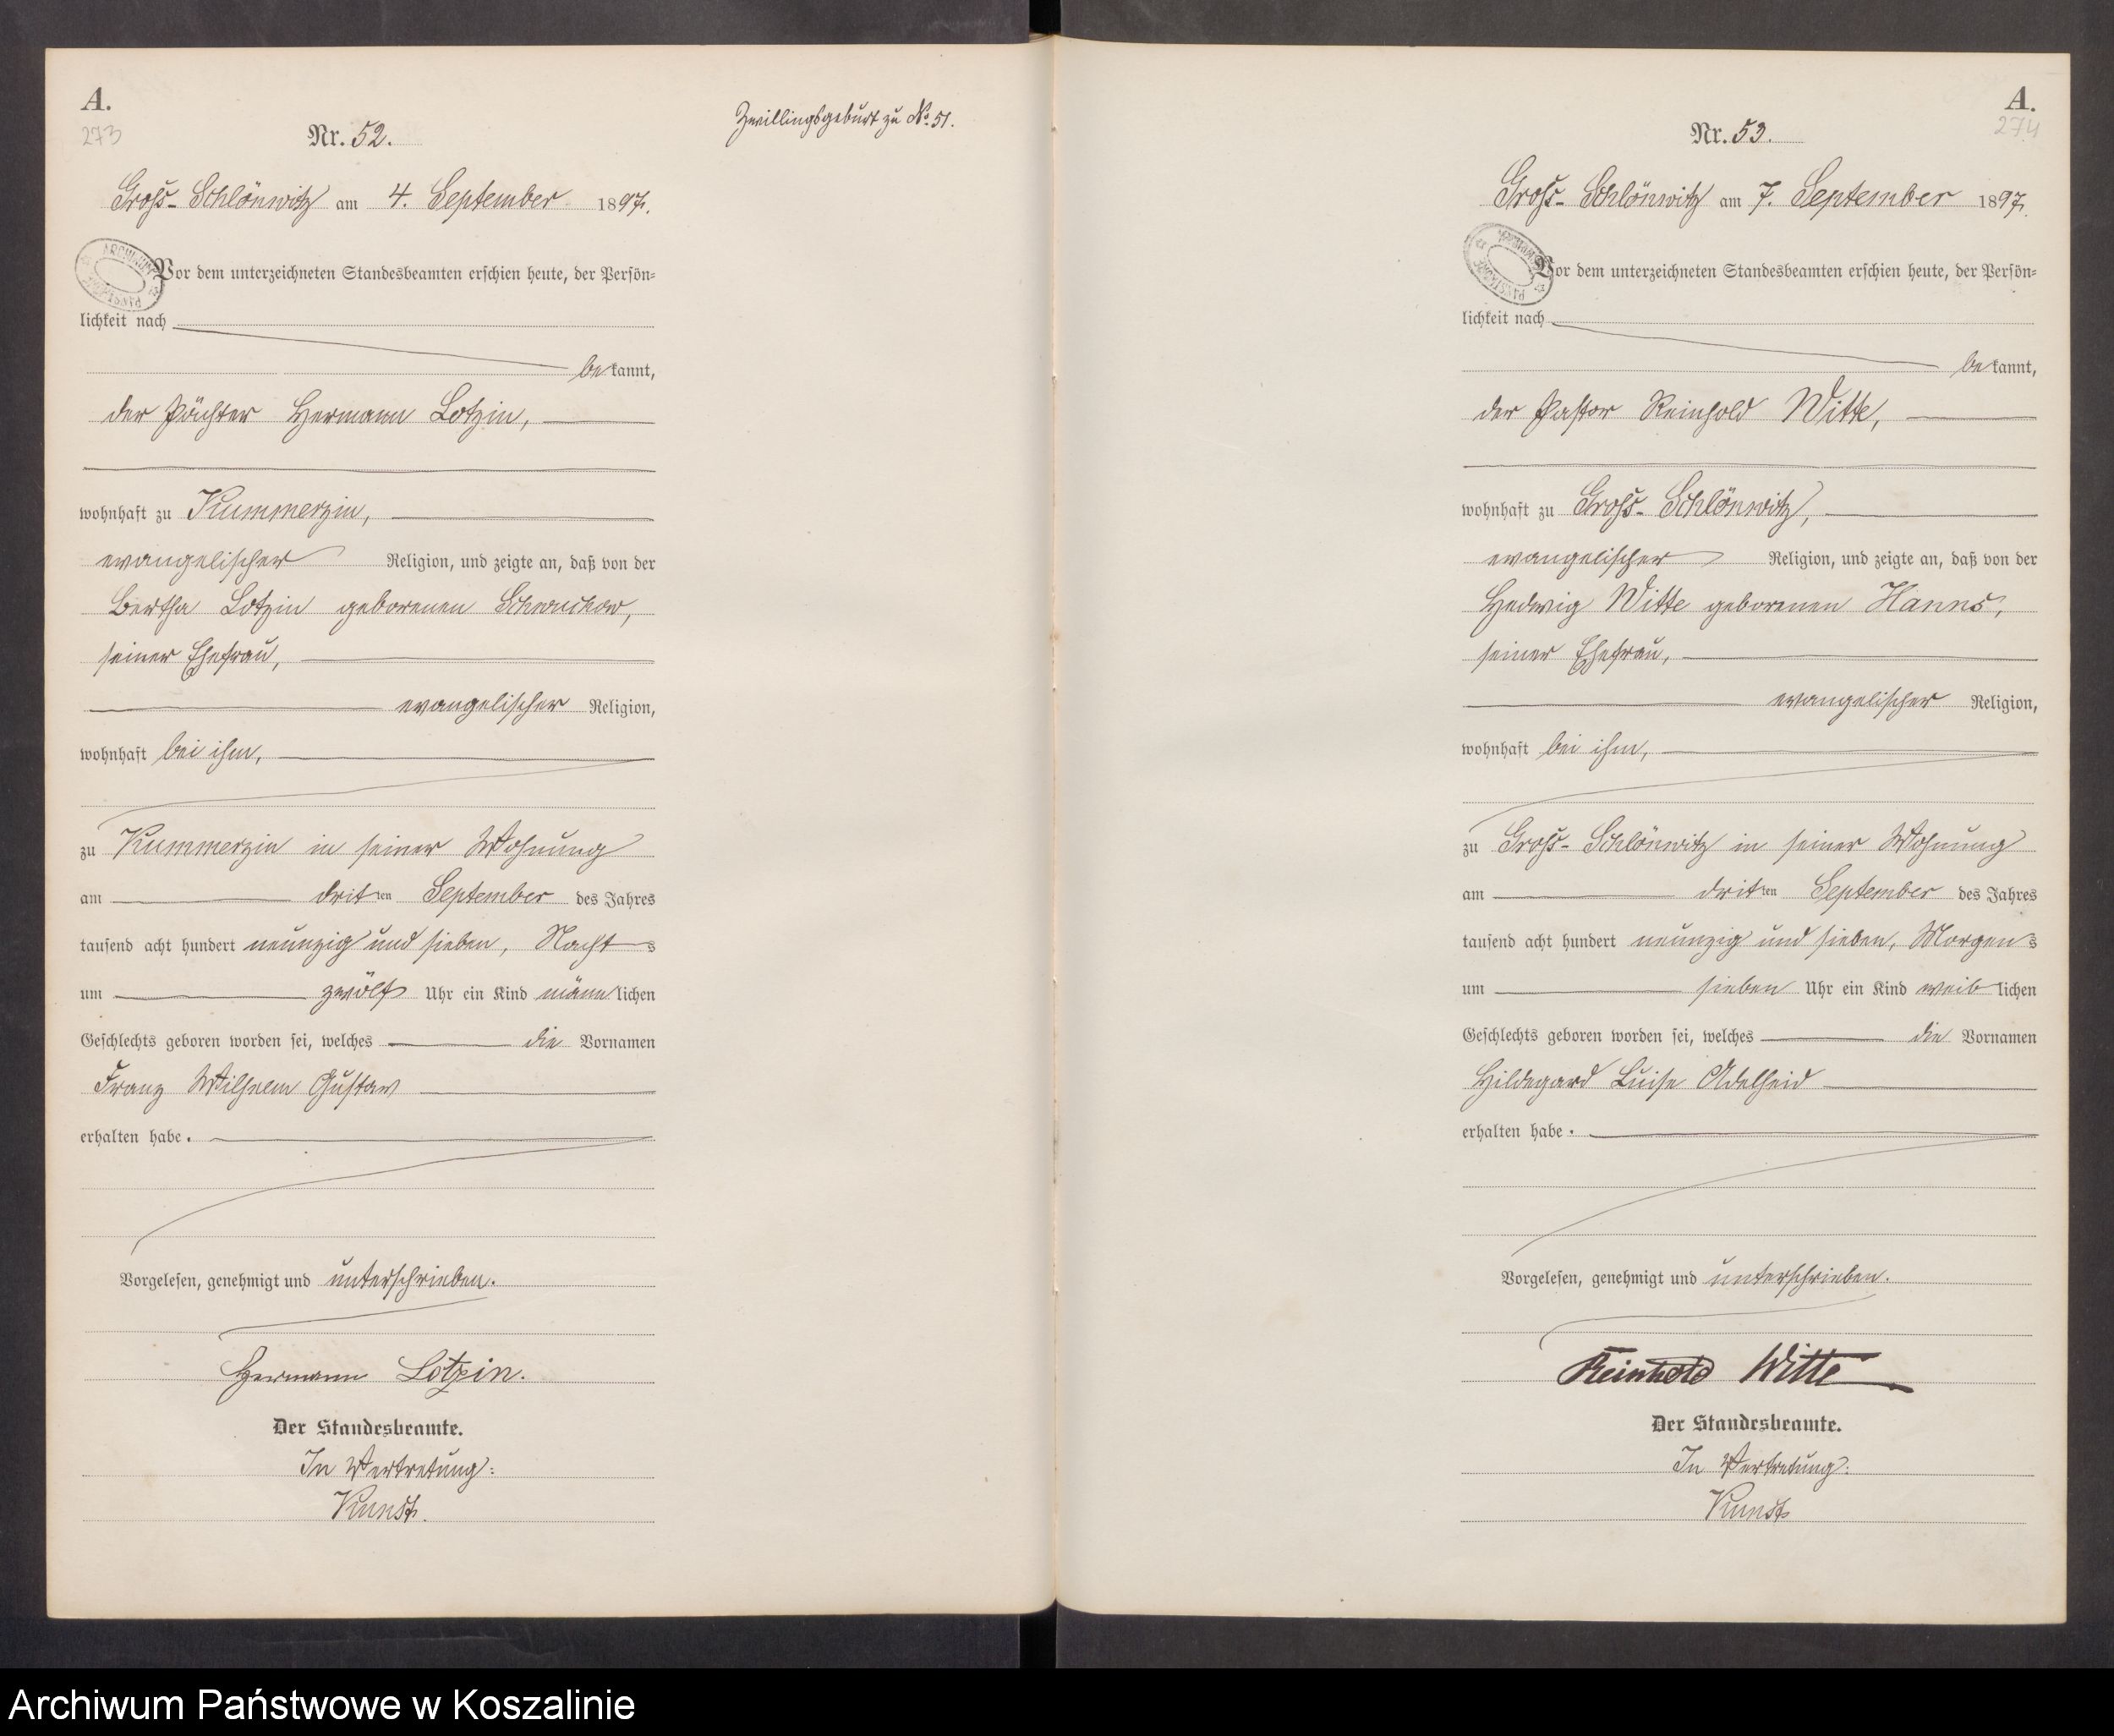 A.
273
Nr. 52.
Zwillingsgeburt zu No. 51.
Groß-Schlönwitz am 4. September 1897.
ARCHIWUM PAŃSTWOWE
Vor dem unterzeichneten Standesbeamten erschien heute, der Persön=
lichkeit nach
bekannt,
der Pächter Hermann Lotzin,
wohnhaft zu Kummerzin,
evangelischer Religion, und zeigte an, daß von der
Bertha Lotzin geborenen Schwuchow,
seiner Ehefrau,
evangelischer Religion,
wohnhaft bei ihm,
zu Kummerzin in seiner Wohnung
am dritten September des Jahres
tausend acht hundert neunzig und sieben, Nachts
um zwölf Uhr ein Kind männlichen
Geschlechts geboren worden sei, welches die Vornamen
Franz Wilhelm Gustav
erhalten habe.
Vorgelesen, genehmigt und unterschrieben.
Hermann Lotzin.
Der Standesbeamte.
In Vertretung:
Kunst.
A.
274
Nr. 53.
Groß-Schlönwitz am 7. September 1897.
Vor dem unterzeichneten Standesbeamten erschien heute, der Persön=
lichkeit nach
bekannt,
der Pastor Reinhold Witte,
wohnhaft zu Groß-Schlönwitz,
evangelischer Religion, und zeigte an, daß von der
Hedwig Witte geborenen Hanns,
seiner Ehefrau,
evangelischer Religion,
wohnhaft bei ihm,
zu Groß-Schlönwitz in seiner Wohnung
am dritten September des Jahres
tausend acht hundert neunzig und sieben, Morgens
um sieben Uhr ein Kind weiblichen
Geschlechts geboren worden sei, welches die Vornamen
Hildegard Luise Adelheid
erhalten habe.
Vorgelesen, genehmigt und unterschrieben.
Reinhold Witte
Der Standesbeamte.
In Vertretung:
Kunst
Archiwum Państwowe w Koszalinie